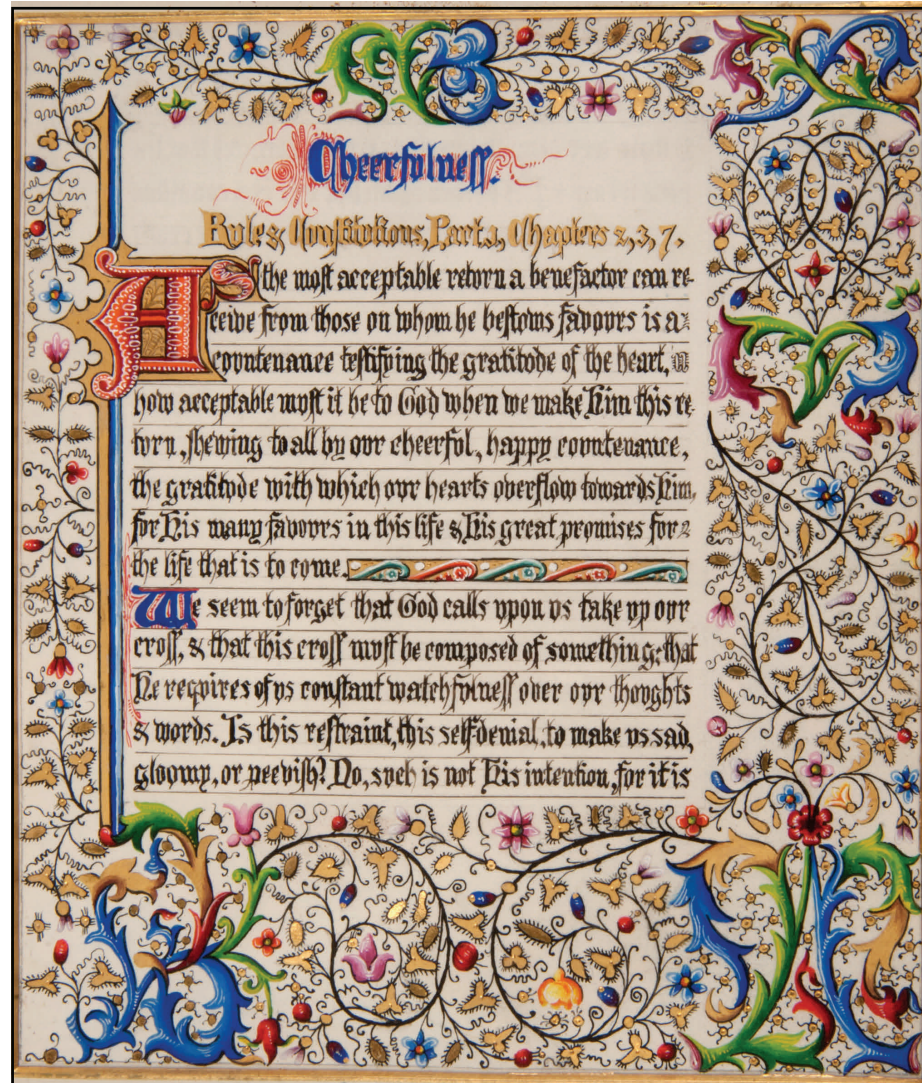 Cheerfulness.
Rules & Constitutions, Part 1, Chapters 2, 3, 7.
As the most acceptable return a benefactor can re-
ceive from those on whom he bestows favours is a
countenance testifying the gratitude of the heart,
how acceptable must it be to God when we make Him this re-
turn, shewing to all by our cheerful, happy countenance,
the gratitude with which our hearts overflow towards Him,
for His many favours in this life & His great promises for
the life that is to come.
We seem to forget that God calls upon us take up our
cross, & that this cross must be composed of something; that
He requires of us constant watchfulness over our thoughts
& words. Is this restraint, this self-denial, to make us sad,
gloomy, or peevish? No, such is not His intention, for it is